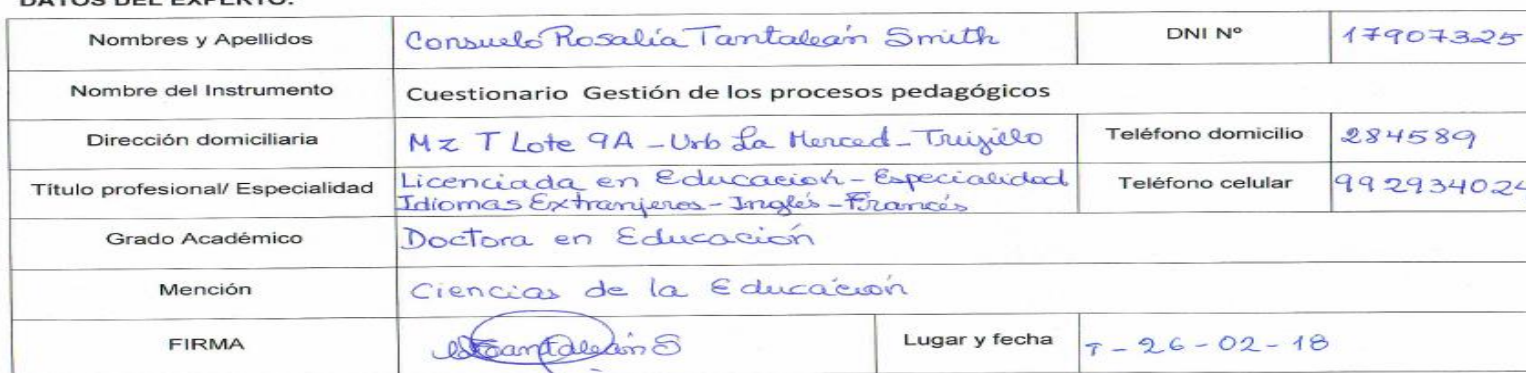 DATOS DEL EXPERTO:
Nombres y Apellidos Consuelo Rosalía Tantaleán Smith DNI Nº 17907325
Nombre del Instrumento Cuestionario Gestión de los procesos pedagógicos
Dirección domiciliaria Mz T Lote 9A - Urb La Merced - Trujillo Teléfono domicilio 284589
Título profesional/ Especialidad Licenciada en Educación - Especialidad Idiomas Extranjeros - Inglés - Francés Teléfono celular 992934024
Grado Académico Doctora en Educación
Mención Ciencias de la Educación
FIRMA Tantaleán S Lugar y fecha T - 26 - 02 - 18